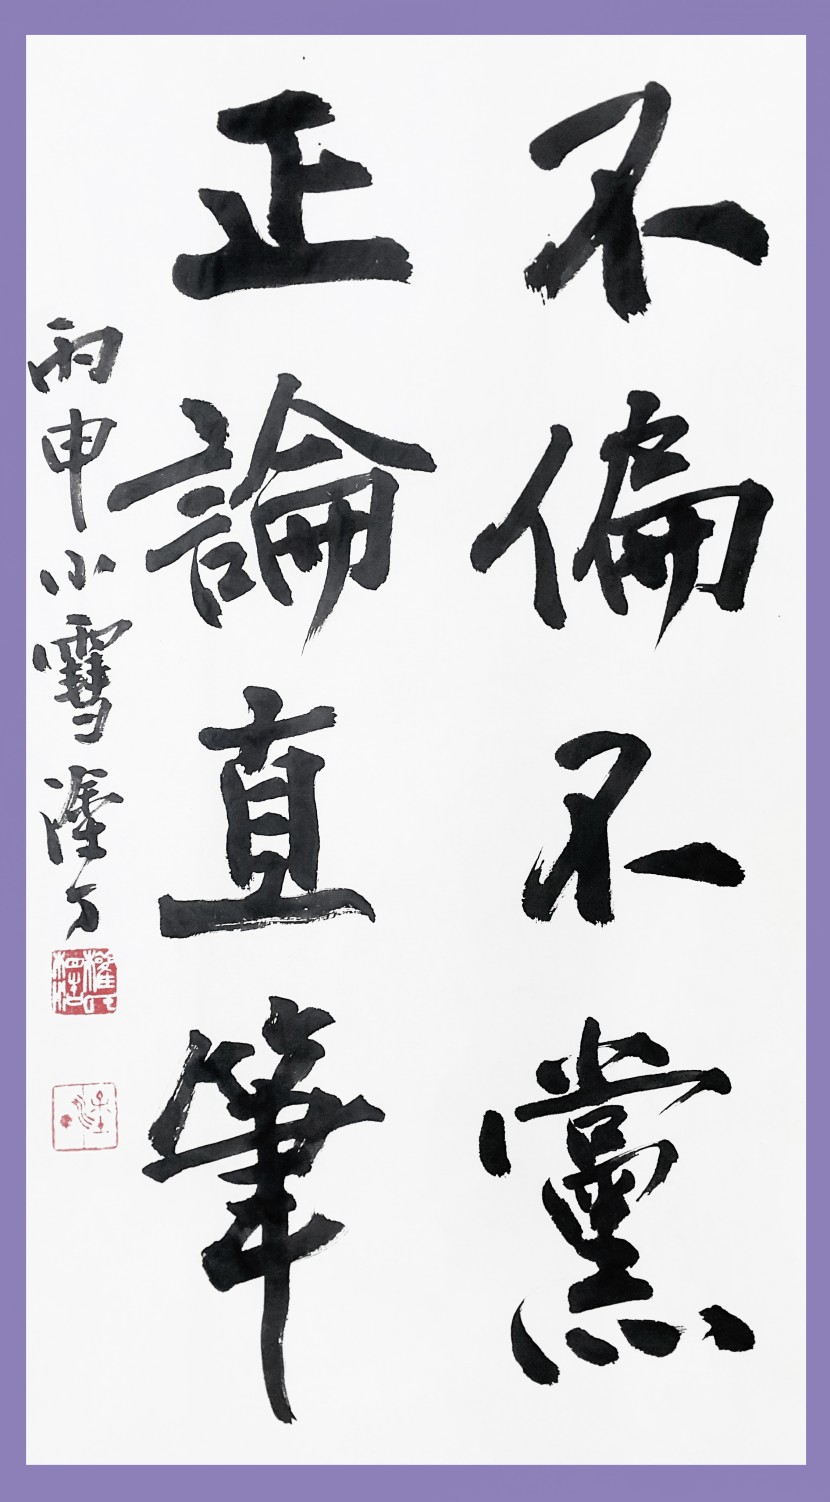 不偏不黨
正論直筆
丙申小雪